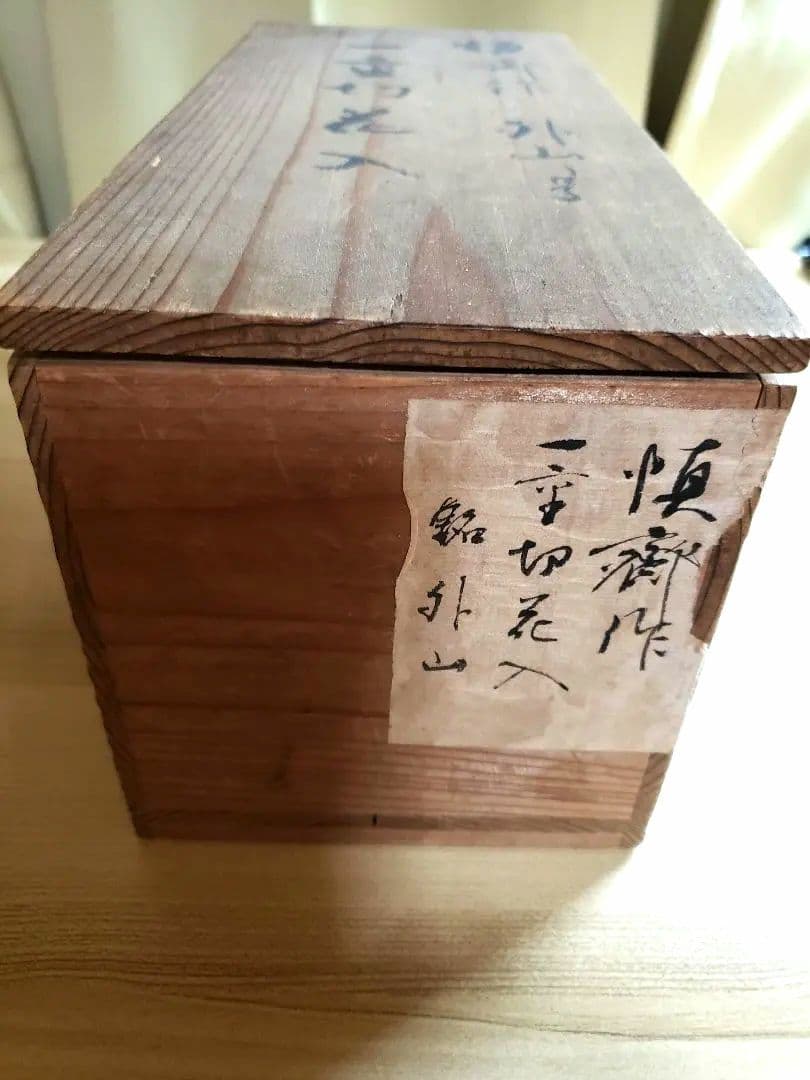 外山
一重切花入
慎齋作
一重切花入
銘外山